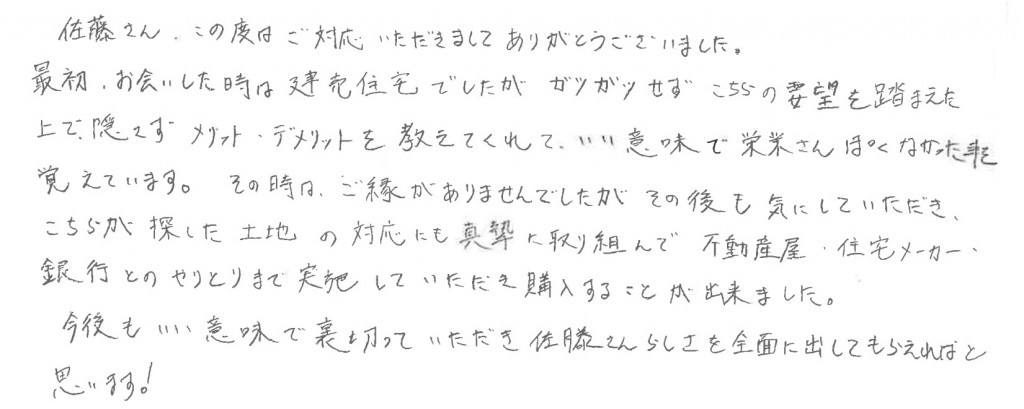 佐藤さん、この度はご対応いただきましてありがとうございました。
最初、お会いした時は建売住宅でしたがガツガツせずこちらの要望を踏まえた
上で、隠さずメリット・デメリットを教えてくれて、いい意味で栄栄さんぽくなかった事を
覚えています。その時は、ご縁がありませんでしたがその後も気にしていただき、
こちらが探した土地の対応にも真摯に取り組んで不動産屋・住宅メーカー・
銀行とのやりとりまで実施していただき購入することが出来ました。
今後もいい意味で裏切っていただき佐藤さんらしさを全面に出してもらえればと
思います!